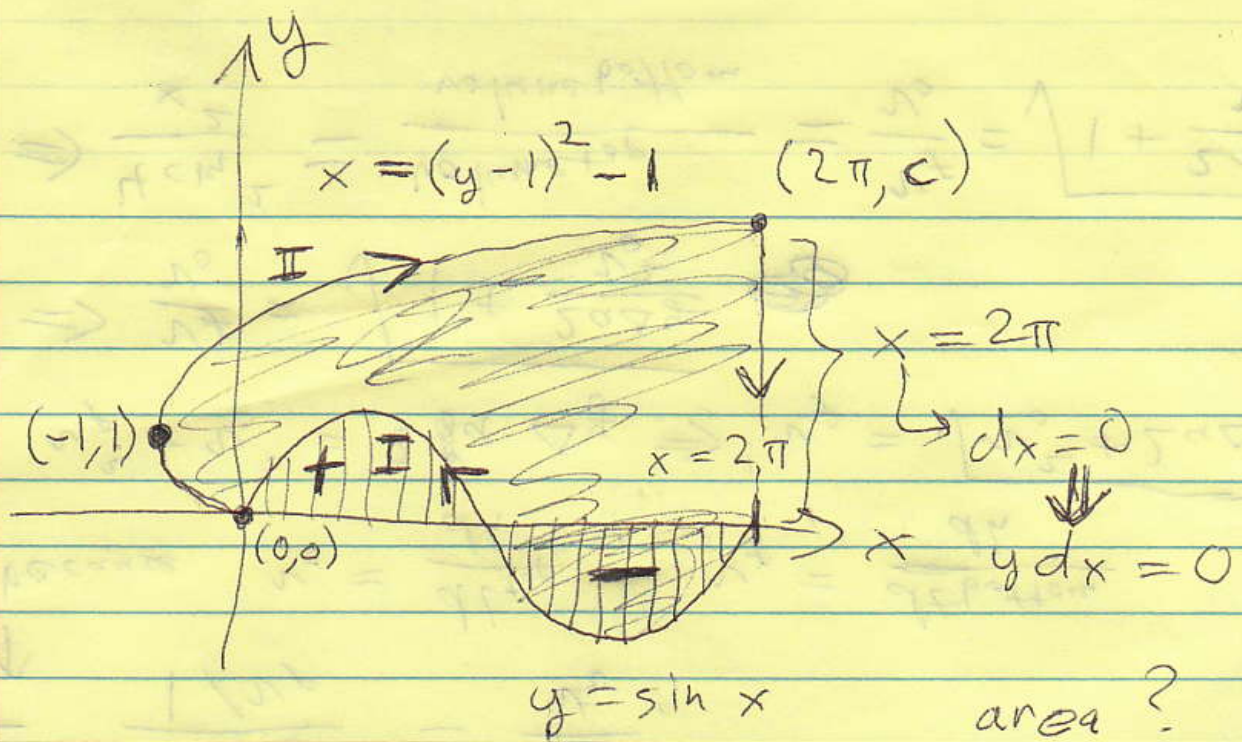 y
x = (y-1)² - 1
(2π, c)
II
x = 2π
(-1,1)
dx = 0
x = 2π
+ I
(0,0)
x
y dx = 0
−
y = sin x
area ?